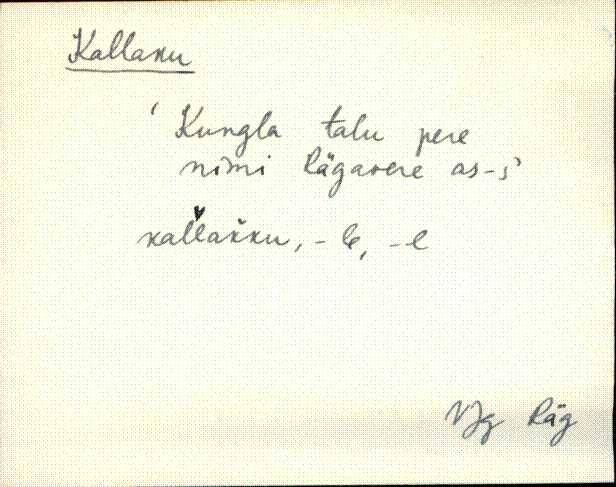 Kallaku
' Kungla talu pere
nimi Rägavere as-s'
kallakku, -le, -l
VJg Räg